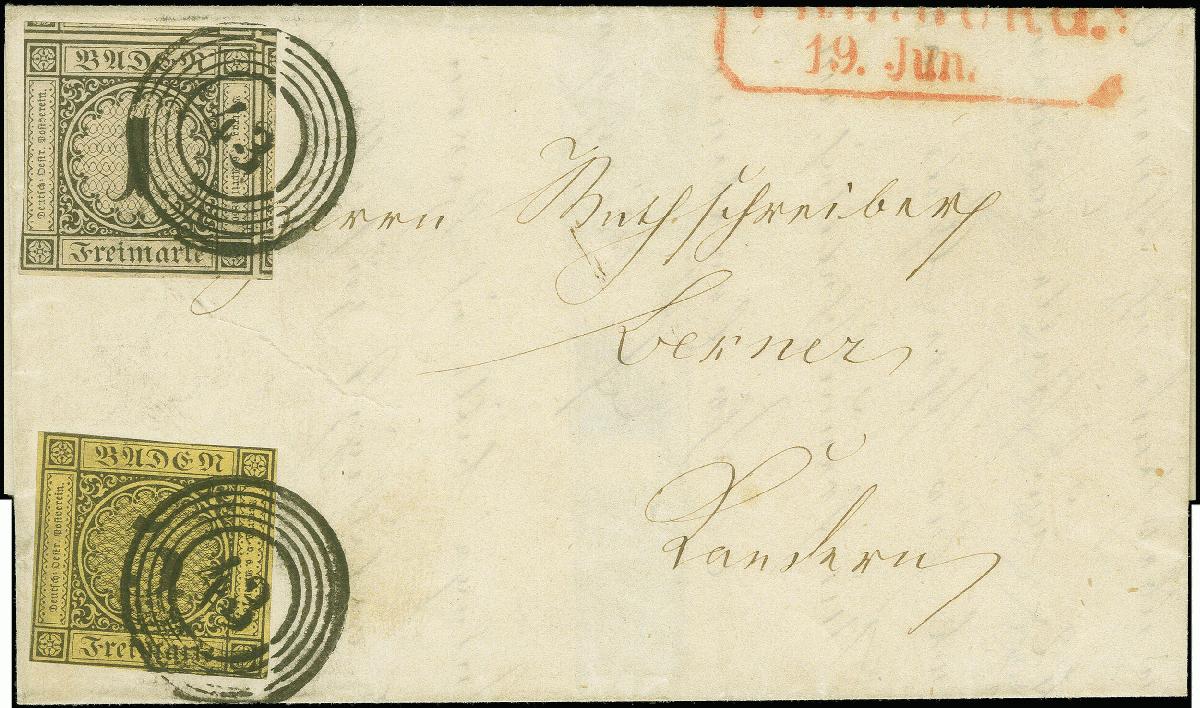 BADEN
Deutsch: Oestr. Postverein.
1
Freimarke
43
19. Jun.
Herrn
Berner
Kandern
BADEN
Deutsch: Oestr. Postverein.
3
Freimarke
43